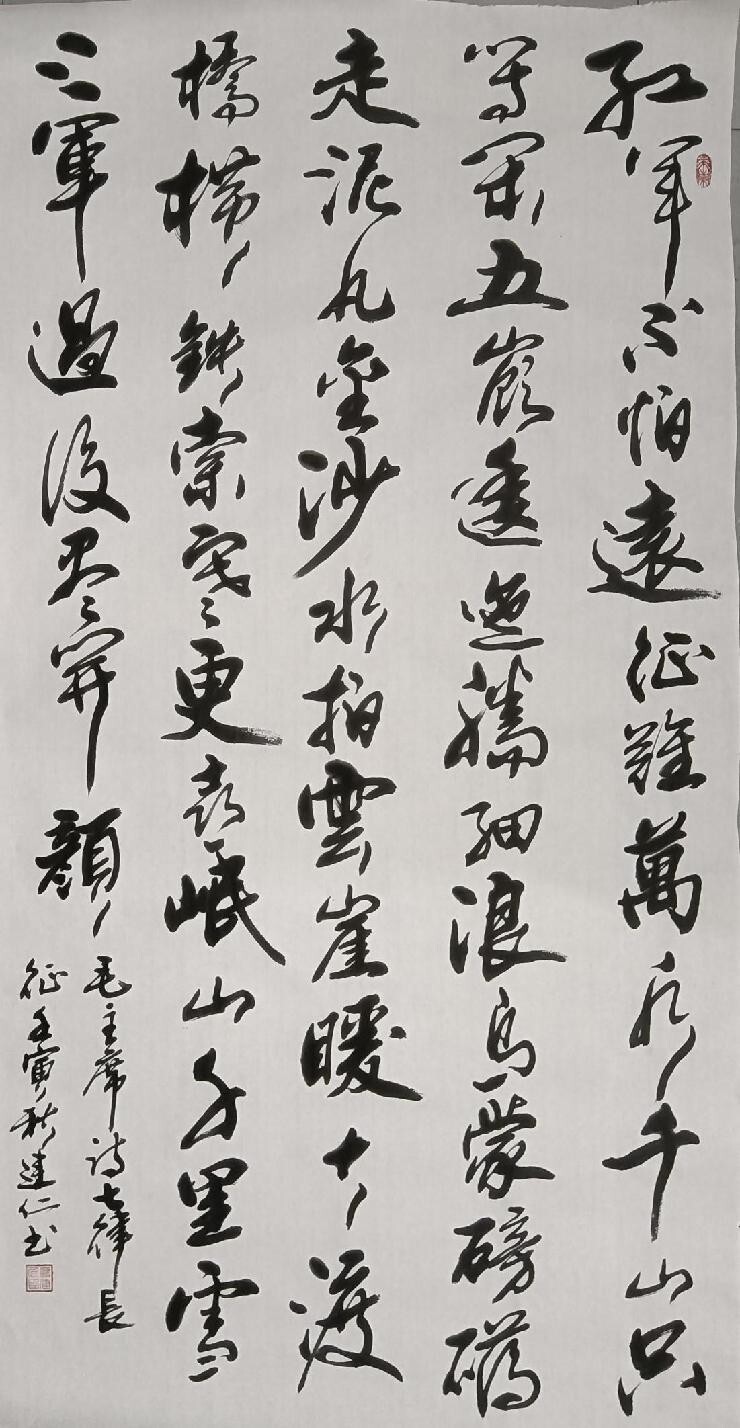 紅軍不怕遠征難萬水千山只
等閑五嶺逶迤騰細浪烏蒙磅礴
走泥丸金沙水拍雲崖暖大渡
橋橫鉄索寒更喜岷山千里雪
三軍過後尽開顏
毛主席詩七律長
征壬寅秋建仁书